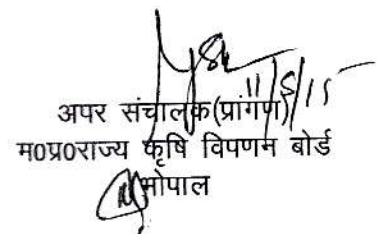 11/5/15
अपर संचालक(प्रांगण)
म0प्र0राज्य कृषि विपणन बोर्ड
भोपाल